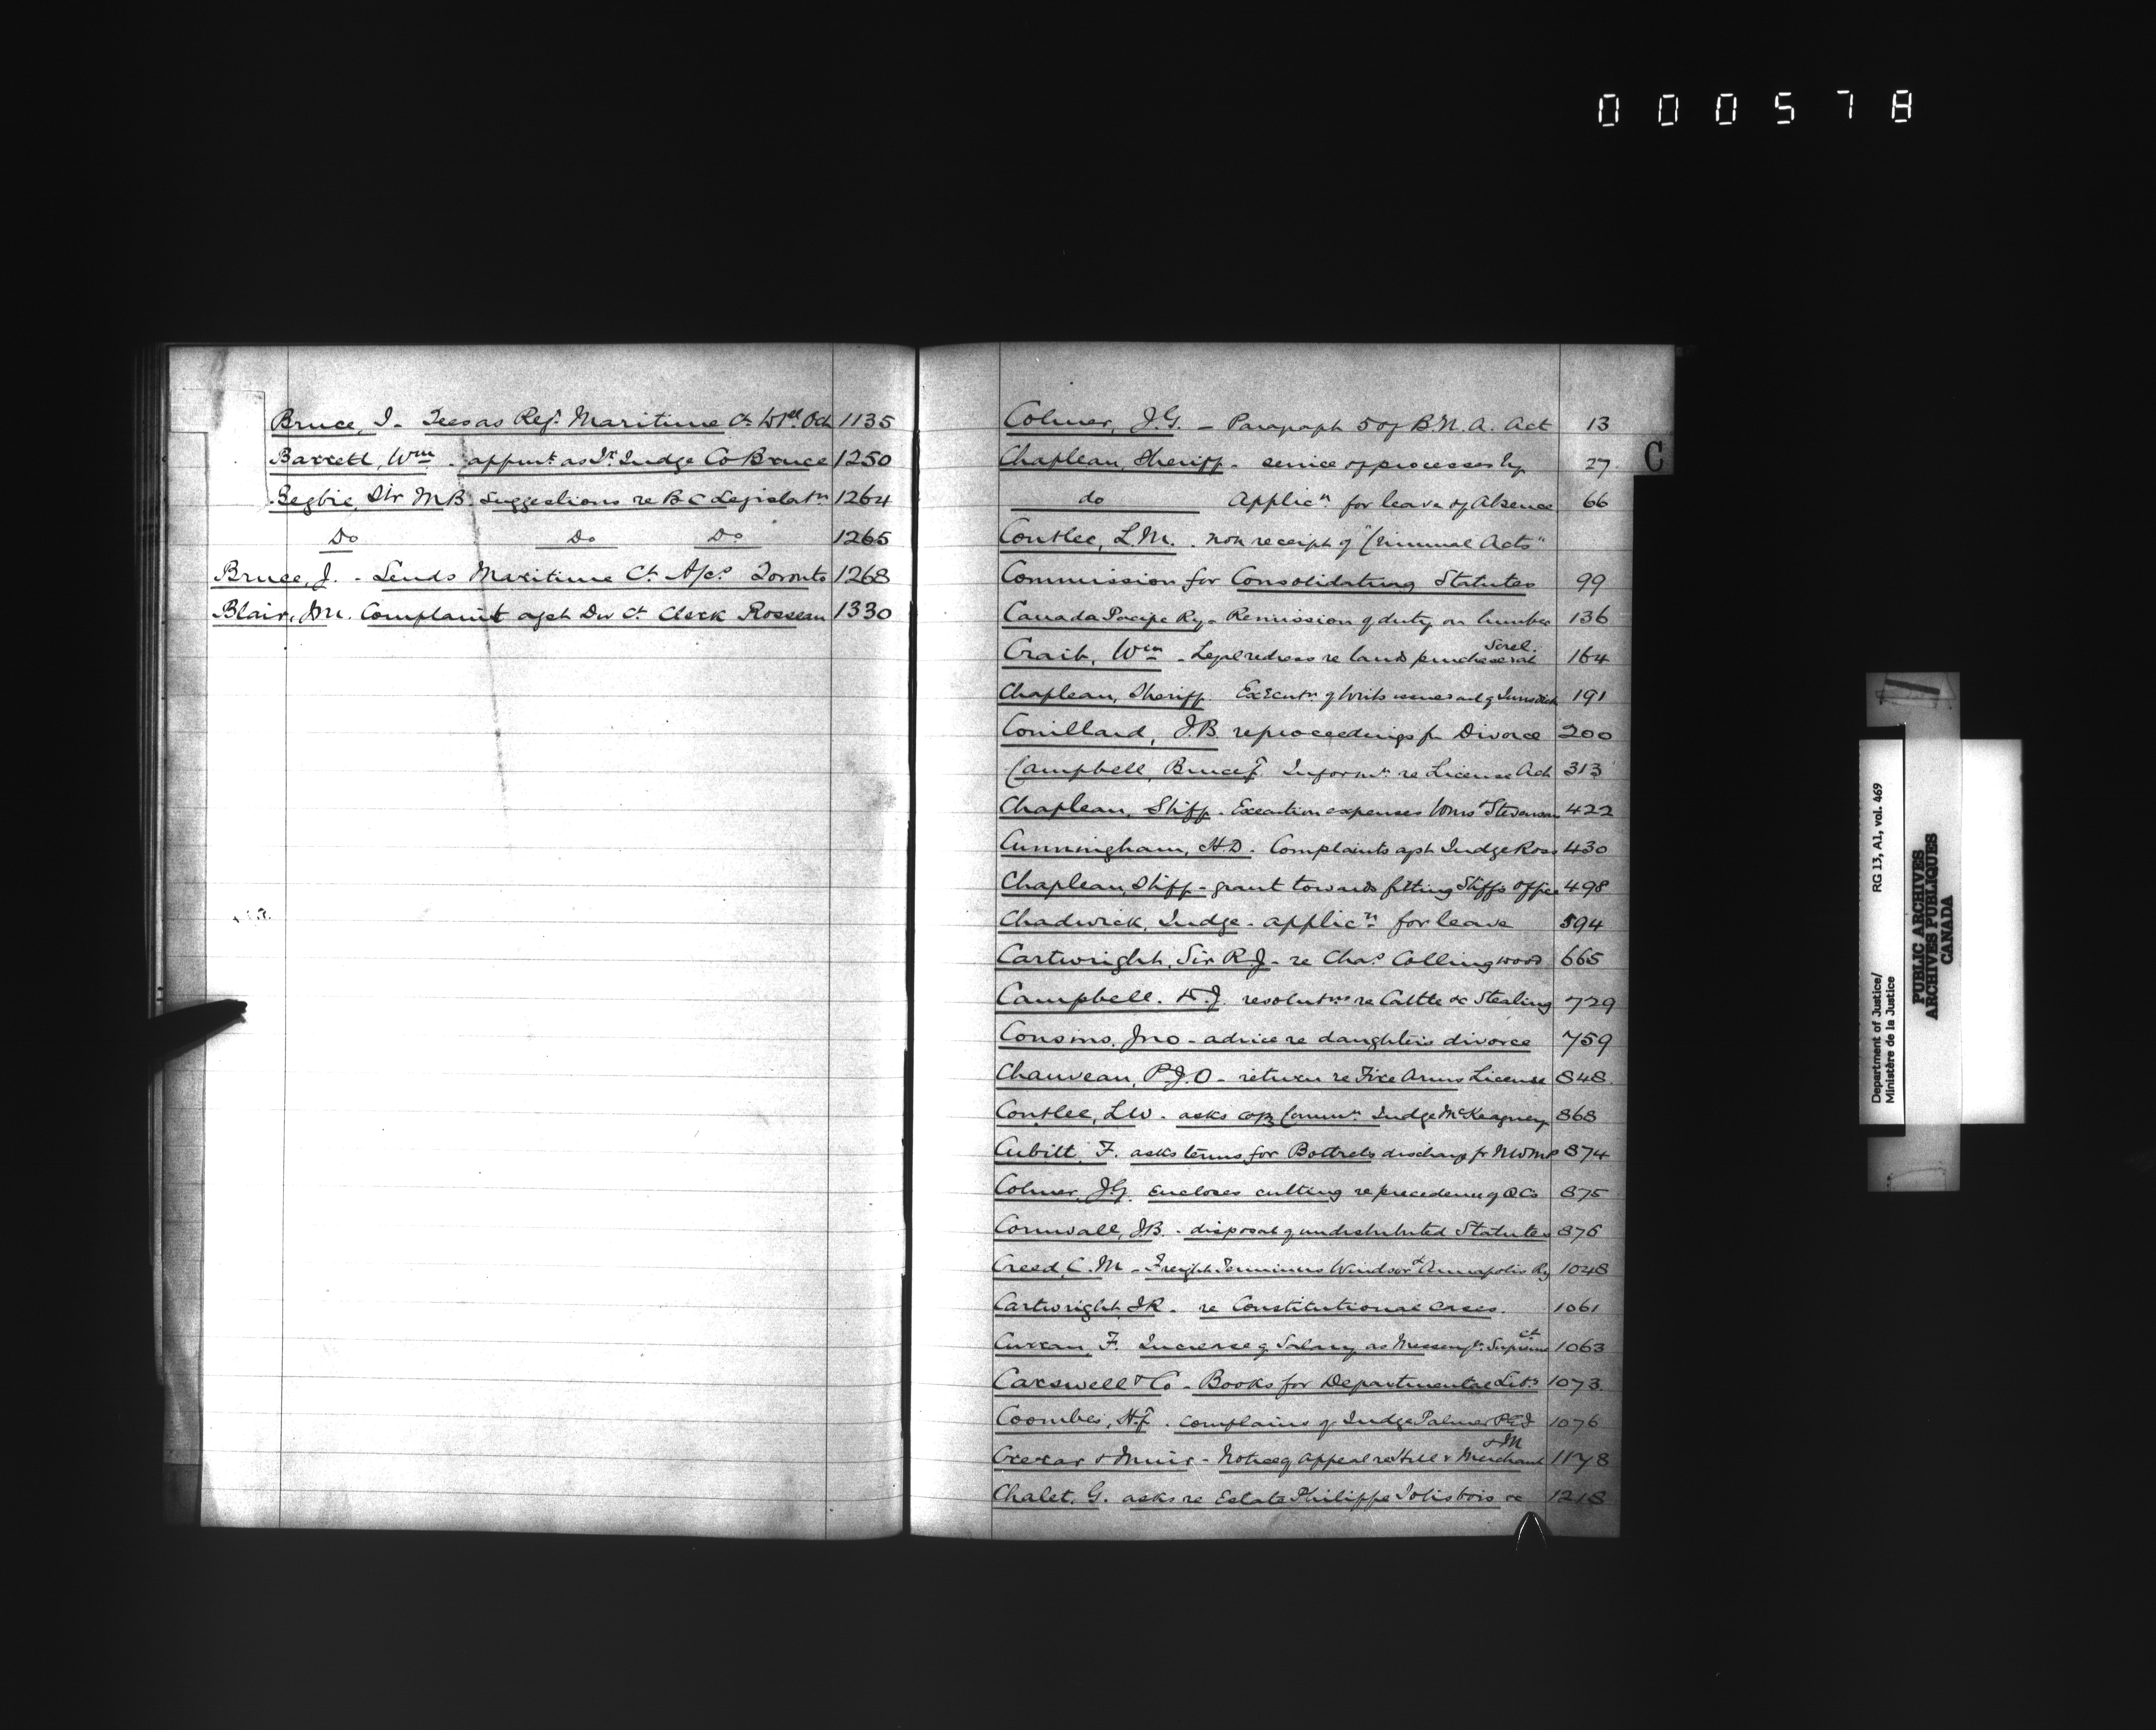 000578
Bruce, J. - Fees as Regr. Maritime Ct. 1135
Barrett, Wm - appmt. as Jr. Judge Co Bruce 1250
Begbie, Sir M B. Suggestions re B C Legislatn 1264
Do Do Do 1265
Bruce, J. - Sends Maritime Ct. A/cs Toronto 1268
Blair, M. Complaint agst Div Ct. Clerk Rosseau 1330
C
Colmer, J.G. - Paragraph 5 of B.N.A. Act 13
Chapleau, Sheriff - service of processes by 27
do Applicn. for leave of Absence 66
Coutlee, L.M. - non receipt of "Criminal Acts"
Commission for Consolidating Statutes 99
Canada Pacific Ry - Remission of duty on lumber 136
Craib, Wm - Legal redress re lands purchased at 164
Chapleau, Sheriff Executn. of Writs issued out of Jurisdictn 191
Couillard, J.B. re proceedings for Divorce 200
Campbell, Bruce F. Informn. re License Act 313
Chapleau, Shiff - Execution expenses Wms & Stevenson 422
Cunningham, H.D. Complaints agst Judge Ross 430
Chapleau, Shiff - grant towards fitting Shiffs office 498
Chadwick, Judge - applicn. for leave 594
Cartwright, Sir R J - re Chas. Collingwood 665
Campbell. D.J. resolutns re Cattle &c Stealing 729
Cousins, Jno - advice re daughters divorce 759
Chauveau, P.J.O - return re Fire Arms License 848
Coutlee, L W. - asks copy Commn. Judge McKeagney 868
Cubitt, F. asks terms for Bottrells discharge fr NWMP 874
Colmer, J.G. Encloses cutting re precedency QCs 875
Cornwall, J.B. - disposal of undistributed Statutes 876
Creed, C. M - Freight Terminus Windsor & Annapolis Ry 1048
Cartwright, J R. - re Constitutional Cases. 1061
Curran, F. Increase of Salary as Messengr. Supreme Ct 1063
Carswell & Co - Books for Departmental Liby 1073
Coombes, H.F. - complains of Judge Palmer P.E.I 1076
Crerar & Muir - Notice of appeal re Hill & Merchant 1178
Chalet, G. asks re Estate Philippe Jolisbois &c 1218
Department of Justice/
Ministère de la Justice
RG 13, A1, vol. 469
PUBLIC ARCHIVES
ARCHIVES PUBLIQUES
CANADA